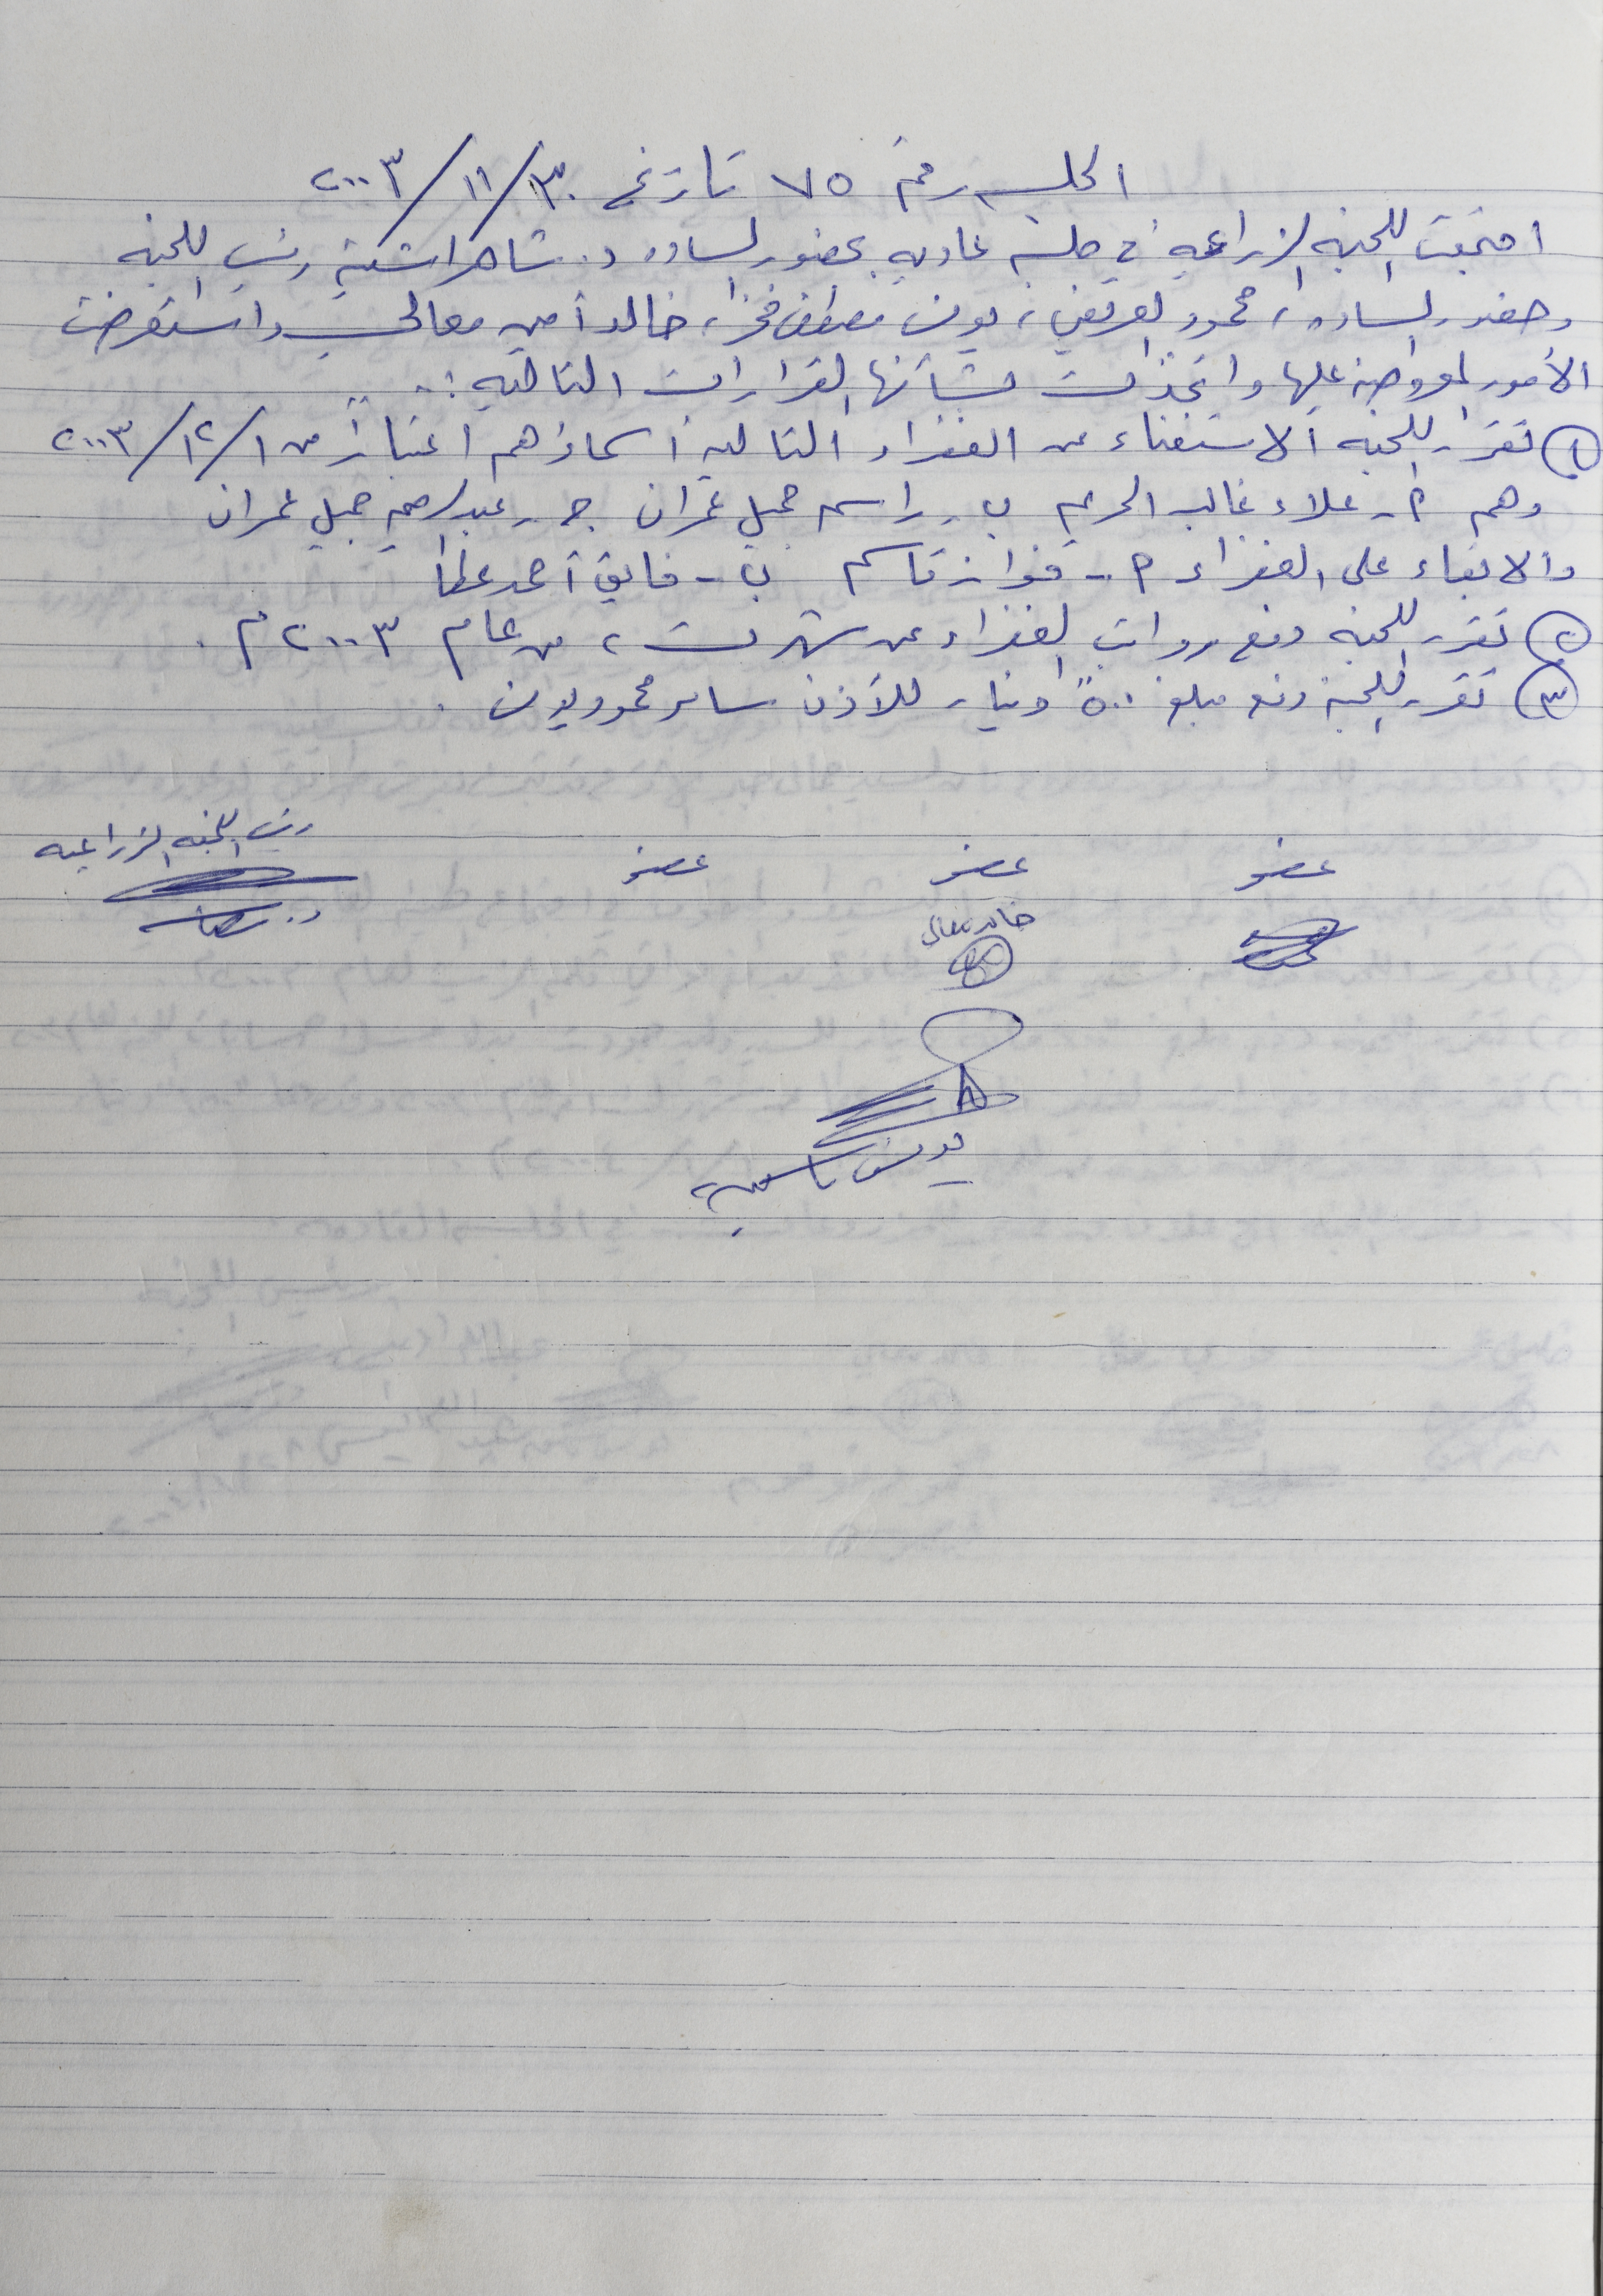 الجلسه رقم ٧٥ تاريخ ٣٠/١١/٢٠٠٣
اجتمعت اللجنه الزراعيه في جلسه عاديه بحضور الساده د. شاهر اشتيه رئيس اللجنه
وحضور الساده، محمود العريفي، يونس مصطفى فخرا، خالد أمين معالي واستعرضت
الأمور المعروضه عليها واتخذت بشأنها القرارات التاليه :.
١ تقرر اللجنه الاستغناء عن الخفراء التاليه أسماؤهم اعتباراً من ١/١٢/٢٠٠٣
وهم أ- علاء غالب ب- راسم جميل عمران ج- عبدالرحيم جميل عمران
والابقاء على الخفراء أ- فواز قاسم ب- فايق أحمد عطا
٢ تقرر اللجنه دفع رواتب الخفراء عن شهر ت، من عام ٢٠٠٣م.
٣ تقرر اللجنه دفع مبلغ ٥٠٠ دينار للآذن سامر محمود يونس .
عضو عضو عضو رئيس اللجنه الزراعيه
خالد معالي
يونس ياسين